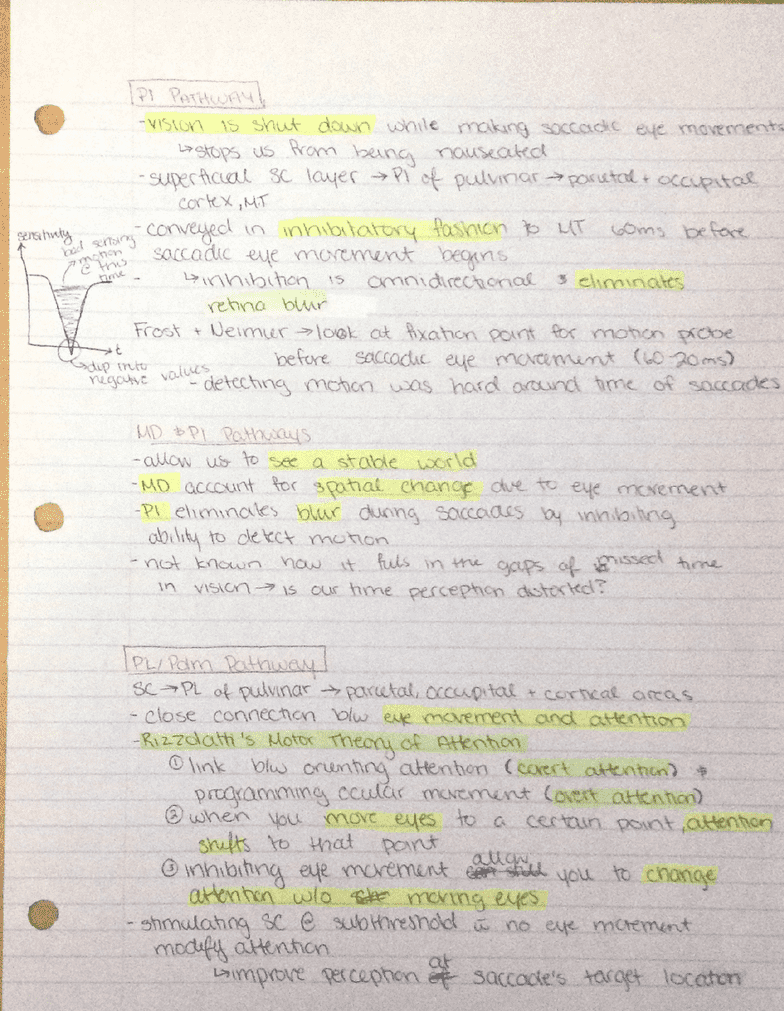 PI PATHWAY
- vision is shut down while making saccadic eye movements
↳ stops us from being nauseated
- superficial SC layer → PI of pulvinar → parietal + occupital
cortex, MT
- conveyed in inhibitatory fashion to MT 60ms before
saccadic eye movement begins
sensitivity
bad sensing
motion
@ this
time
t
↳ dip into
negative values
- ↳ inhibition is omnidirectional & eliminates
retina blur
Frost + Neimier → look at fixation point for motion probe
before saccadic eye movement (60-20ms)
- detecting motion was hard around time of saccades
MD & PI Pathways
- allow us to see a stable world
- MD account for spatial change due to eye movement
- PI eliminates blur during saccades by inhibiting
ability to detect motion
- not known how it fills in the gaps of missed time
in vision → is our time perception distorted?
PL/Pdm Pathway
SC → PL of pulvinar → parietal, occupital + cortical areas
- close connection b/w eye movement and attention
- Rizzolatti's Motor Theory of Attention
① link b/w orienting attention (covert attention) &
programming ocular movement (overt attention)
② when you move eyes to a certain point, attention
shifts to that point
③ inhibiting eye movement allow you to change
attention w/o moving eyes
- stimulating SC @ subthreshold c̄ no eye movement
modify attention
↳ improve perception at saccade's target location